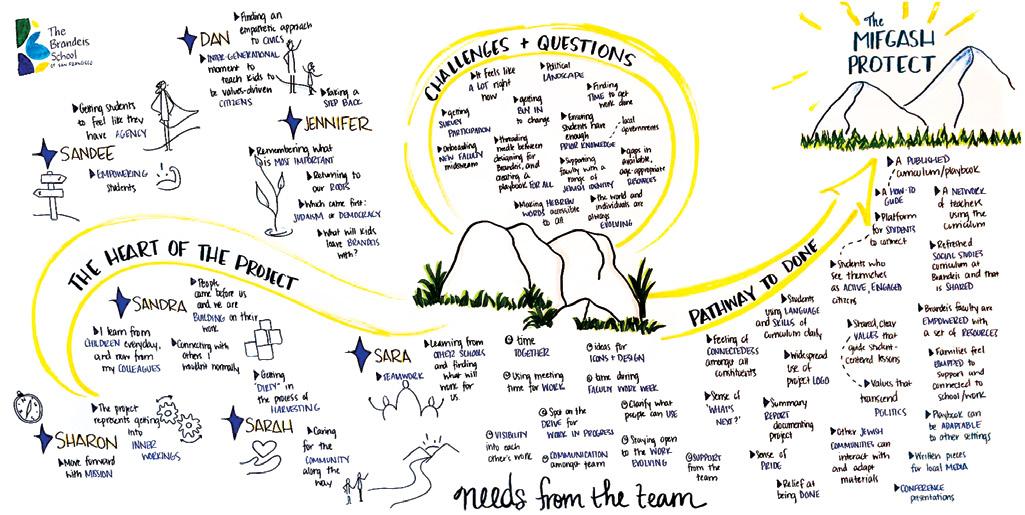 The
Brandeis
School
OF SAN FRANCISCO
DAN
Finding an
empathetic approach
to CIVICS
INTER-GENERATIONAL
moment to
teach kids to
be values-driven
CITIZENS
Taking a
STEP BACK
Getting students
to feel like they
have AGENCY
SANDEE
EMPOWERING
students
JENNIFER
Remembering what
is MOST IMPORTANT
Returning to
our ROOTS
Which came first:
JUDAISM or DEMOCRACY
What will kids
leave BRANDEIS
with?
CHALLENGES + QUESTIONS
It feels like
A LOT right
now
Political
LANDSCAPE
getting
SURVEY
PARTICIPATION
getting
BUY IN
to change
Finding
TIME to get
work done
Onboarding
NEW FACULTY
midstream
threading
needle between
designing for
Brandeis, and
creating a
playbook FOR ALL
Ensuring
students have
enough
PRIOR KNOWLEDGE
local
governments
Supporting
faculty with a
range of
JEWISH IDENTITY
gaps in
available,
age-appropriate
RESOURCES
Making HEBREW
WORDS accessible
to all
the world and
individuals are
always
EVOLVING
The
MIFGASH
PROJECT
THE HEART OF THE PROJECT
SANDRA
People
came before us
and we are
BUILDING on their
work
I learn from
CHILDREN everyday,
and now from
my COLLEAGUES
Connecting with
others I
wouldn't normally
Getting
"DIRTY" in
the process of
HARVESTING
The project
represents getting
into
INNER
WORKINGS
SHARON
Move forward
with MISSION
SARAH
Caring
for the
COMMUNITY
along the
way
SARA
TEAMWORK
Learning from
OTHER SCHOOLS
and finding
what will
work for
us
time
TOGETHER
ideas for
ICONS + DESIGN
Using meeting
time for WORK
time during
FACULTY WORK WEEK
Spot on the
DRIVE for
WORK IN PROGRESS
Clarify what
people can USE
VISIBILITY
into each
other's work
COMMUNICATION
amongst team
Staying open
to the WORK
EVOLVING
SUPPORT
from the
team
needs from the team
PATHWAY TO DONE
A PUBLISHED
curriculum/playbook
A HOW-TO
GUIDE
A NETWORK
of teachers
using the
curriculum
Platform
for STUDENTS
to connect
Students who
see themselves
as ACTIVE, ENGAGED
citizens
Refreshed
SOCIAL STUDIES
curriculum at
Brandeis and that
is SHARED
Students
using LANGUAGE
and SKILLS of
curriculum daily
Feeling of
CONNECTEDNESS
amongst all
constituents
Shared, clear
VALUES that
guide student-
centered lessons
Brandeis faculty are
EMPOWERED with
a set of RESOURCES
Widespread
use of
project LOGO
Values that
transcend
POLITICS
Families feel
EQUIPPED to
support and
connected to
school/work
Sense of
"WHAT'S
NEXT?"
Summary
REPORT
documenting
project
Playbook can
be ADAPTABLE
to other settings
Sense of
PRIDE
Other JEWISH
COMMUNITIES can
interact with
and adapt
materials
Written pieces
for local MEDIA
Relief at
being DONE
CONFERENCE
presentations